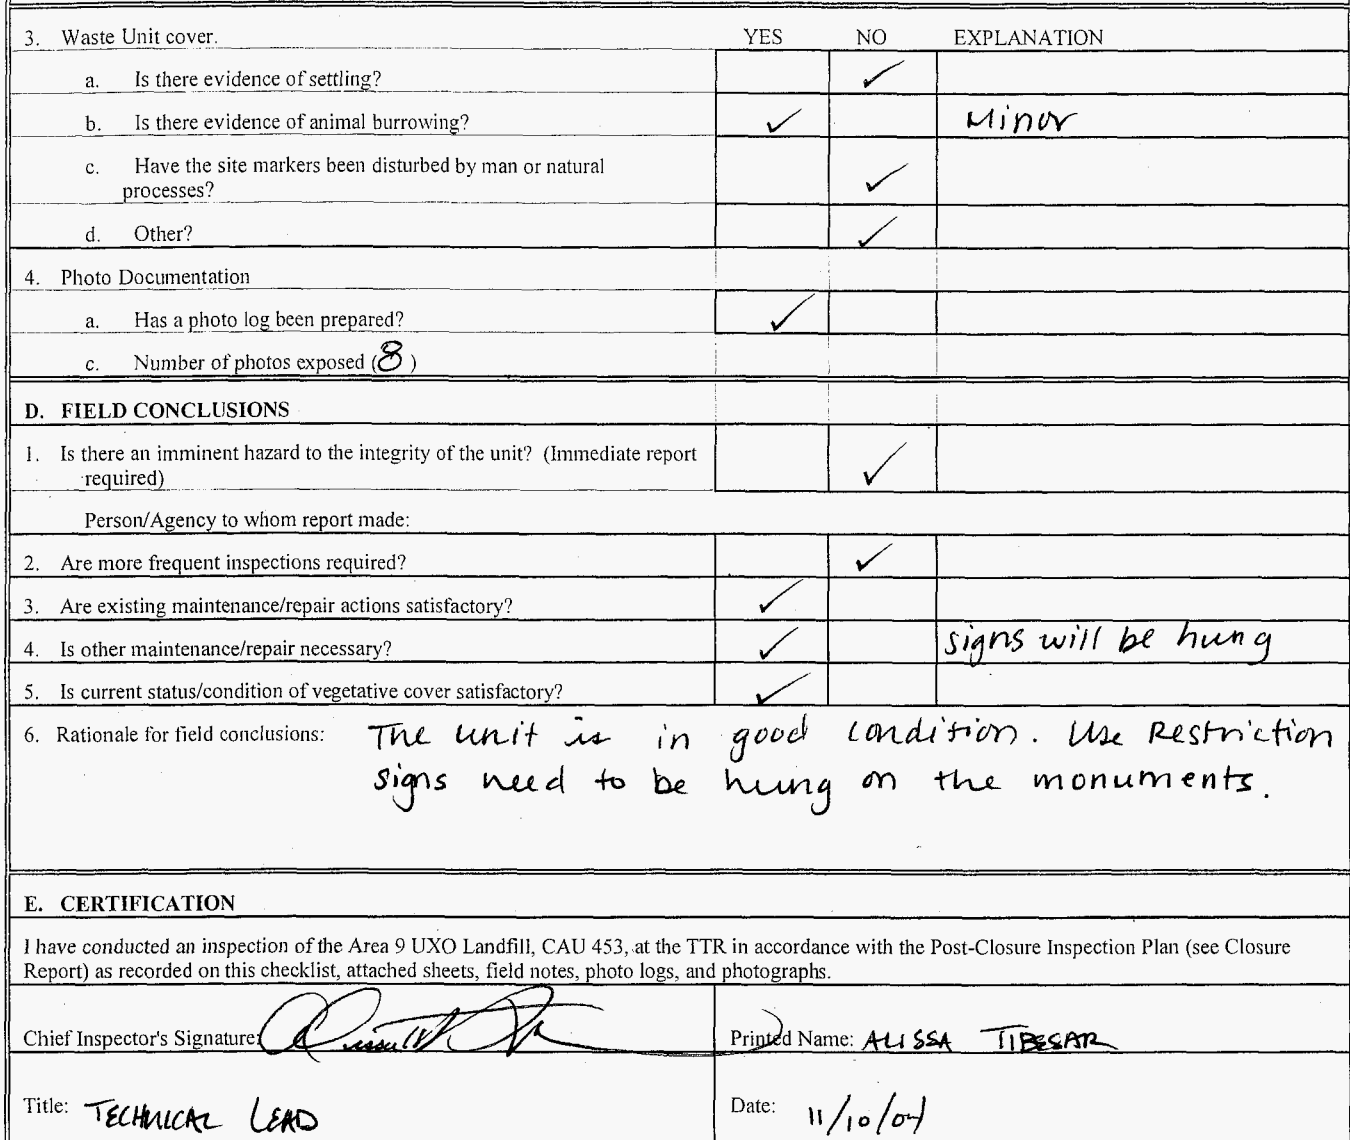 3. Waste Unit cover. YES NO EXPLANATION
a. Is there evidence of settling? ✓
b. Is there evidence of animal burrowing? ✓ Minor
c. Have the site markers been disturbed by man or natural
processes? ✓
d. Other? ✓
4. Photo Documentation
a. Has a photo log been prepared? ✓
c. Number of photos exposed (8)
D. FIELD CONCLUSIONS
1. Is there an imminent hazard to the integrity of the unit? (Immediate report
required) ✓
Person/Agency to whom report made:
2. Are more frequent inspections required? ✓
3. Are existing maintenance/repair actions satisfactory? ✓
4. Is other maintenance/repair necessary? ✓ signs will be hung
5. Is current status/condition of vegetative cover satisfactory? ✓
6. Rationale for field conclusions: The unit is in good condition. Use Restriction
signs need to be hung on the monuments.
E. CERTIFICATION
I have conducted an inspection of the Area 9 UXO Landfill, CAU 453, at the TTR in accordance with the Post-Closure Inspection Plan (see Closure
Report) as recorded on this checklist, attached sheets, field notes, photo logs, and photographs.
Chief Inspector's Signature: Printed Name: ALISSA TIBESAR
Title: TECHNICAL LEAD Date: 11/10/04